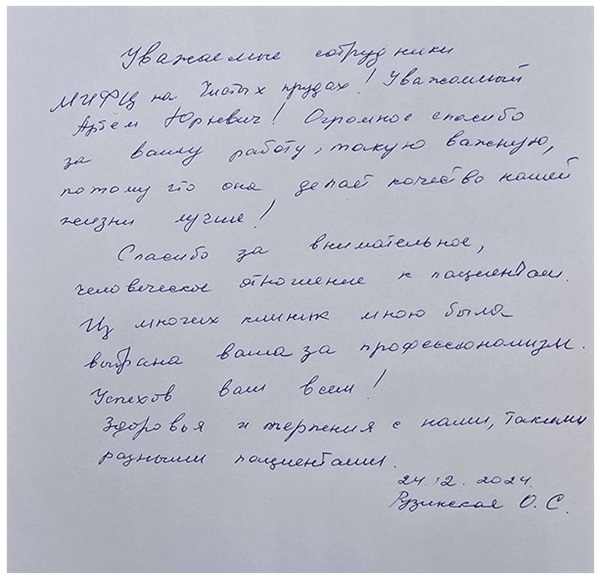 Уважаемые сотрудники
МИФЦ на Чистых прудах! Уважаемый
Артём Юрьевич! Огромное спасибо
за вашу работу, такую важную,
потому что она делает качество нашей
жизни лучше!
Спасибо за внимательное,
человеческое отношение к пациентам.
Из многих клиник мною была
выбрана ваша за профессионализм.
Успехов вам всем!
Здоровья и терпения с нами, такими
разными пациентами.
24.12.2024.
Рузинская О. С.